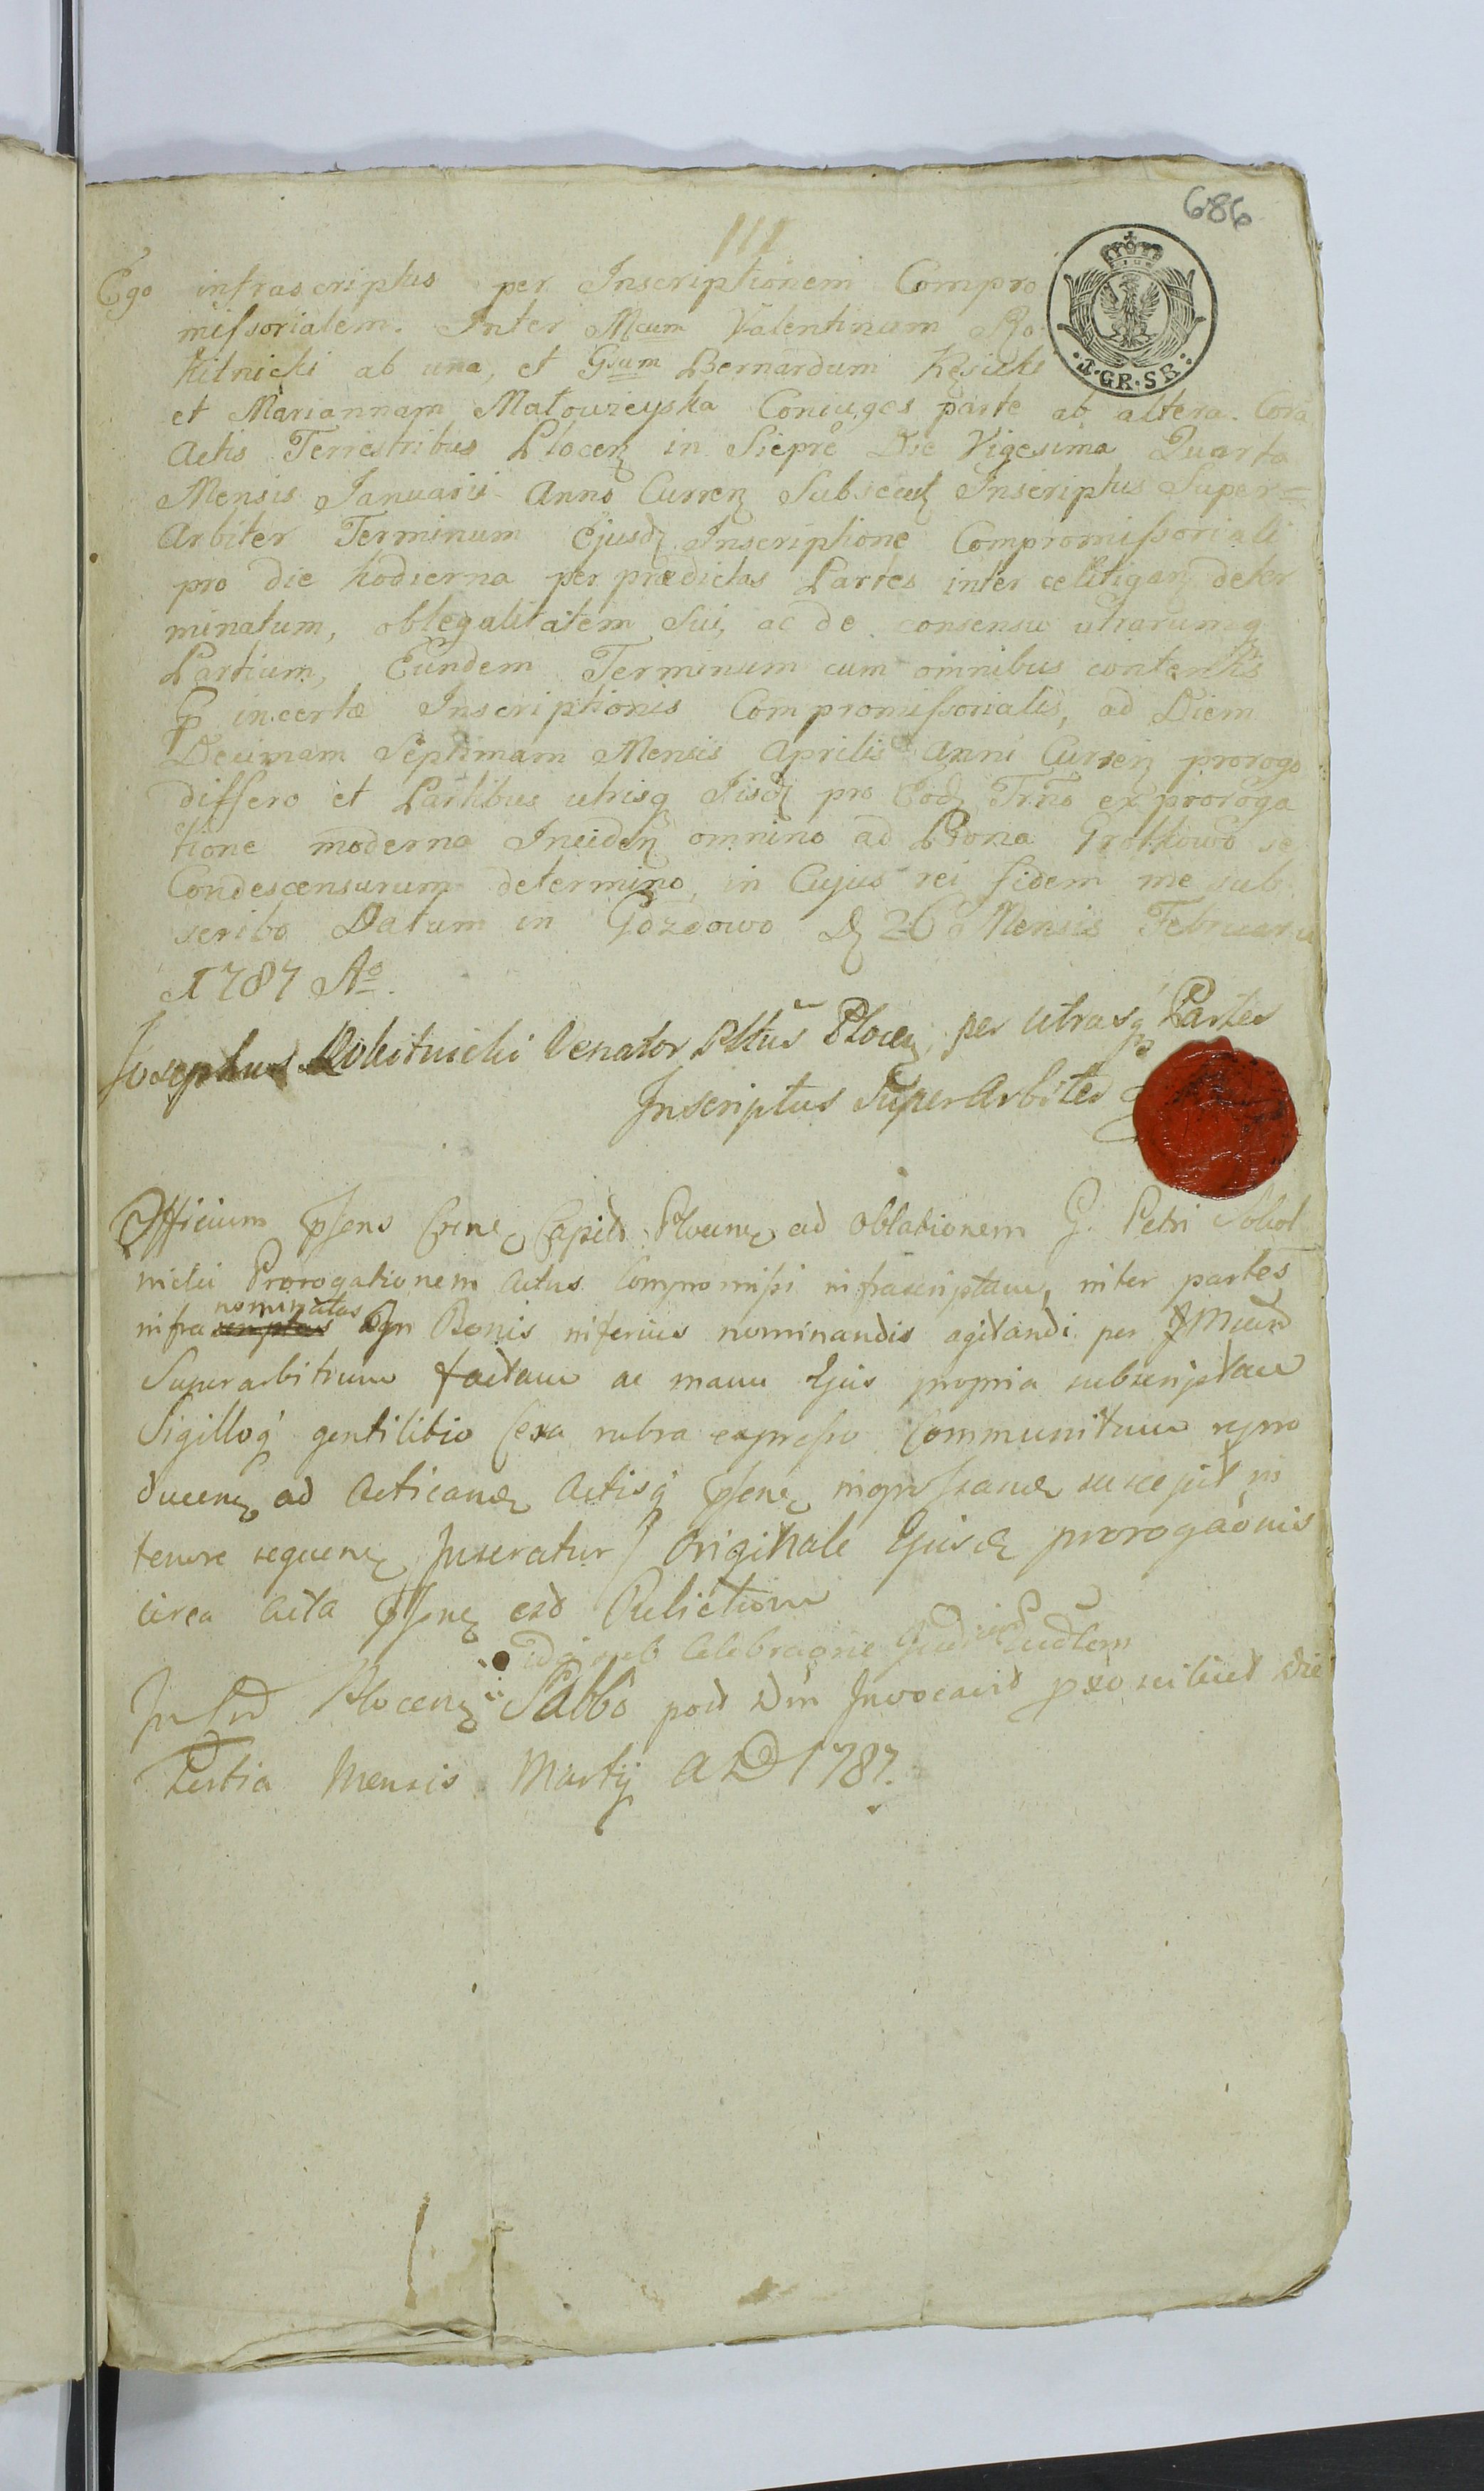 686
111
Ego infrascriptus per Inscriptionem Compro
missorialem. Inter Mcum Valentinum Ro
kitnicki ab una, et Gsum Bernardum Kęsicki
et Mariannam Matowieyska Coniuges parte ab altera. Corā
Actis Terrestribus Plocen in Siepre Die Vigesima Quarta
Mensis Januarii Anno Curren Subsecut Inscriptus Super=
Arbiter Terminum Ejusd Inscriptione Compromissoriali
pro die hodierna per prædictas Partes inter se litigan deter
minatum, oblegalitatem Sui, ac de consensu utrarumq
Partium, Eundem Terminum cum omnibus contentis
incertæ Inscriptionis Compromissorialis, ad Diem
Decimam Septimam Mensis Aprilis Anni Curren prorogo
differo et Partibus utrisq Iisd pro Eod Trno ex proroga
tione moderna Inciden omnino ad Bona Grotkowo se
Condescensurum determino, in Cujus rei fidem me sub
scribo Datum in Gozdowo D 26 Mensis Februarii
1787 Ao.
Josephus Rokitnicki Venator Plocen, per utrasq Partes
Inscriptus SuperArbiter
Officium psens Crense Capit Plocen ad Oblationem G. Petri Sobot
nicki Prorogationem actus Compromissi infrascriptam, inter partes
infra scriptas nominatas Bonis inferius nominandis agitandi per
Superarbitrum factam ac manu Ejus propria subscriptam
Sigilloq gentilitio Cera rubra expresso Communitam repro
ducen ad acticand actisq psen ingrossand suscepit in
tenore sequen Inseratur / Originale Ejusd prorogaonis
circa acta psen est Relictum
sub Celebraone
Plocen Sabbo post Dm Invocavit pxo scilicet die
Tertia Mensis Martij A D 1787.
J. GR. SR.